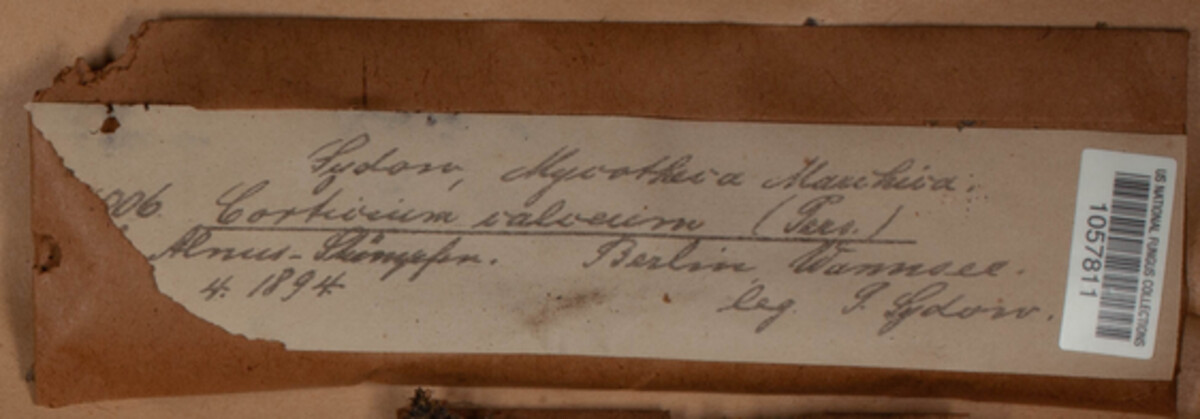 Sydow, Mycotheca Marchica.
006 Corticium calceum (Pers.)
Alnus-Stümpfen. Berlin, Wannsee.
4. 1894 leg. P. Sydow.
US NATIONAL FUNGUS COLLECTIONS
1057811